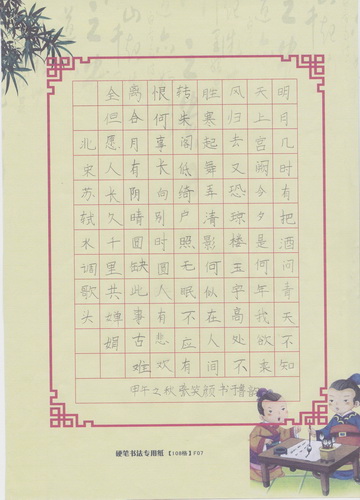 明月几时有把酒问青天不知
天上宫阙今夕是何年我欲乘
风归去又恐琼楼玉宇高处不
胜寒起舞弄清影何似在人间
转朱阁低绮户照无眠不应有
恨何事长向别时圆人有悲欢
离合月有阴晴圆缺此事古难
全但愿人长久千里共婵娟
北宋苏轼水调歌头
甲午之秋张笑颜书于
硬笔书法专用纸【108格】F07